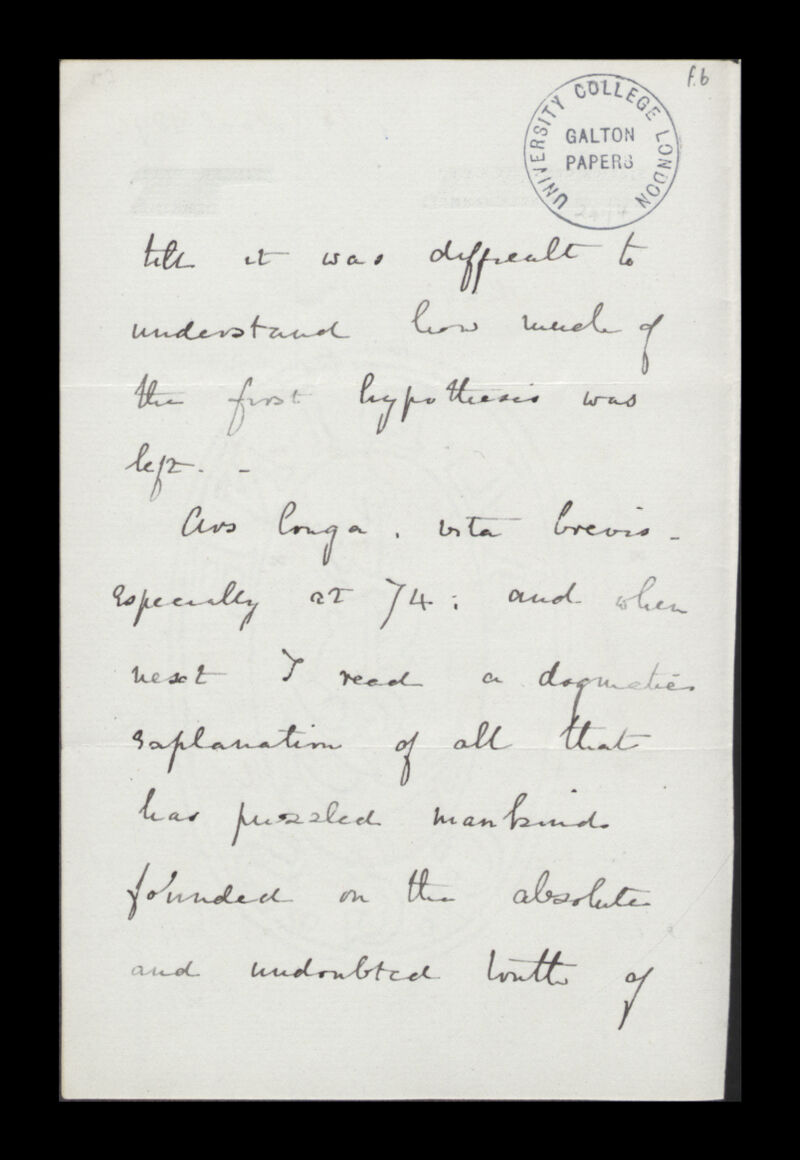 f.6
UNIVERSITY COLLEGE LONDON
GALTON
PAPERS
till it was difficult to
understand how much of
the first hypothesis was
left. -
Ars longa, vita brevis -
especially at 74: and when
next I read a dogmatic
explanation of all that
has puzzled mankind
founded on the absolute
and undoubted truth of